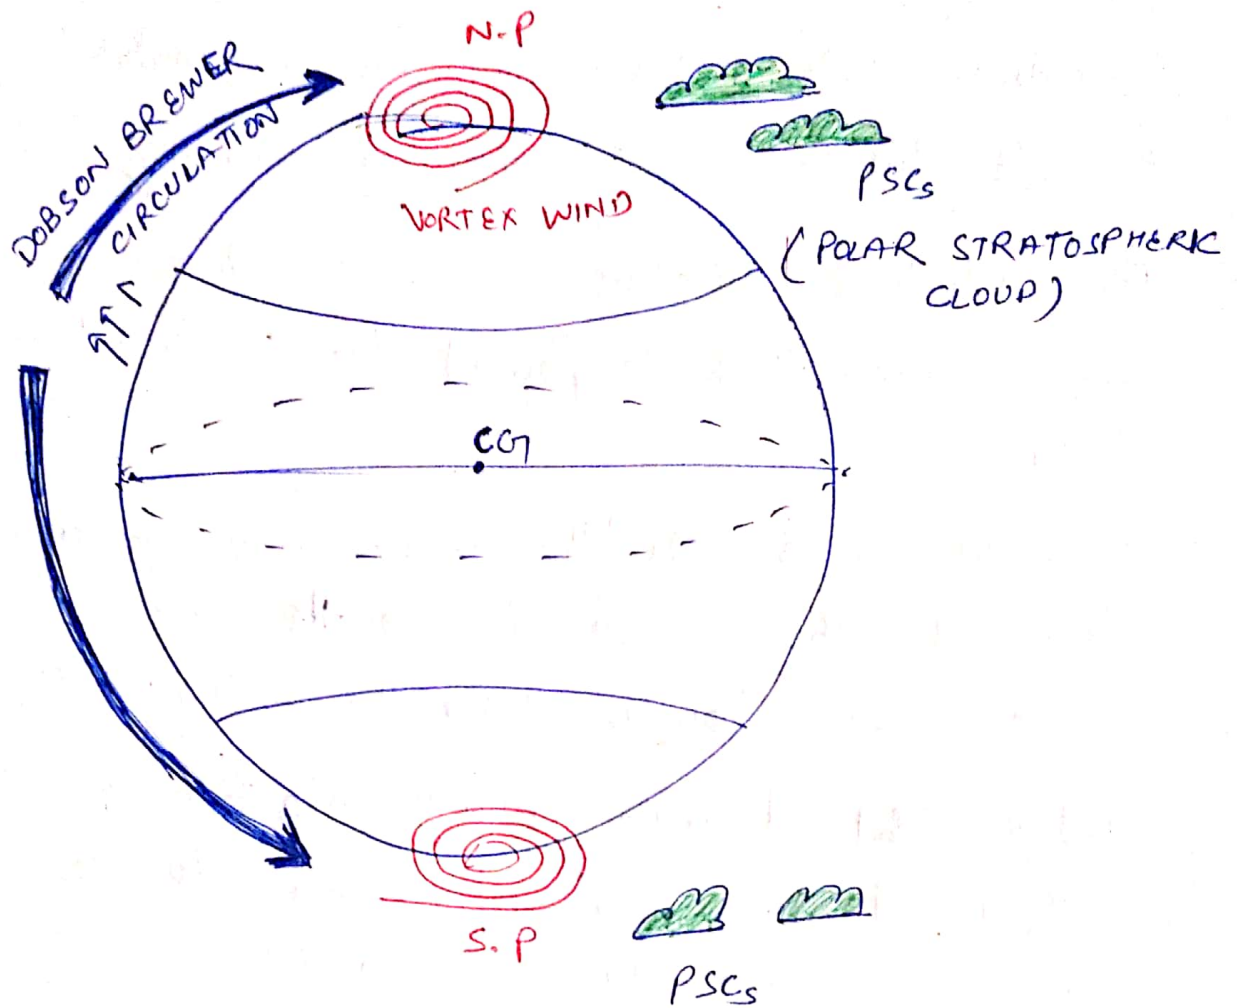 N.P
DOBSON BREWER
CIRCULATION
VORTEX WIND
PSCs
(POLAR STRATOSPHERIC
CLOUD)
CG
S.P
PSCs